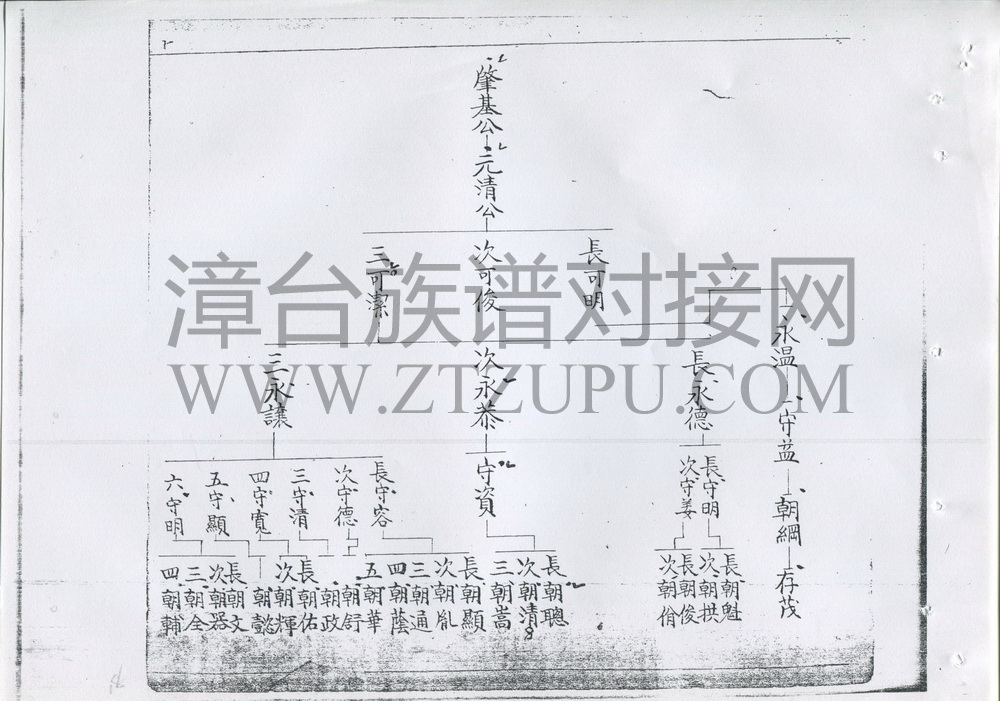 肇基公
元清公
長可明
次可俊
三可潔
永温
守益
朝綱
存茂
長永德
次永恭
三永讓
長守明
次守姜
守資
長守容
次守德
三守清
四守寬
五守顯
六守明
長朝魁
次朝拱
長朝俊
次朝佾
長朝聰
次朝清
三朝嵩
長朝顯
次朝胤
三朝通
四朝蔭
五朝華
朝舒
朝政
長朝佑
次朝輝
朝懿
長朝文
次朝器
三朝全
四朝輔
漳台族谱对接网
WWW.ZTZUPU.COM